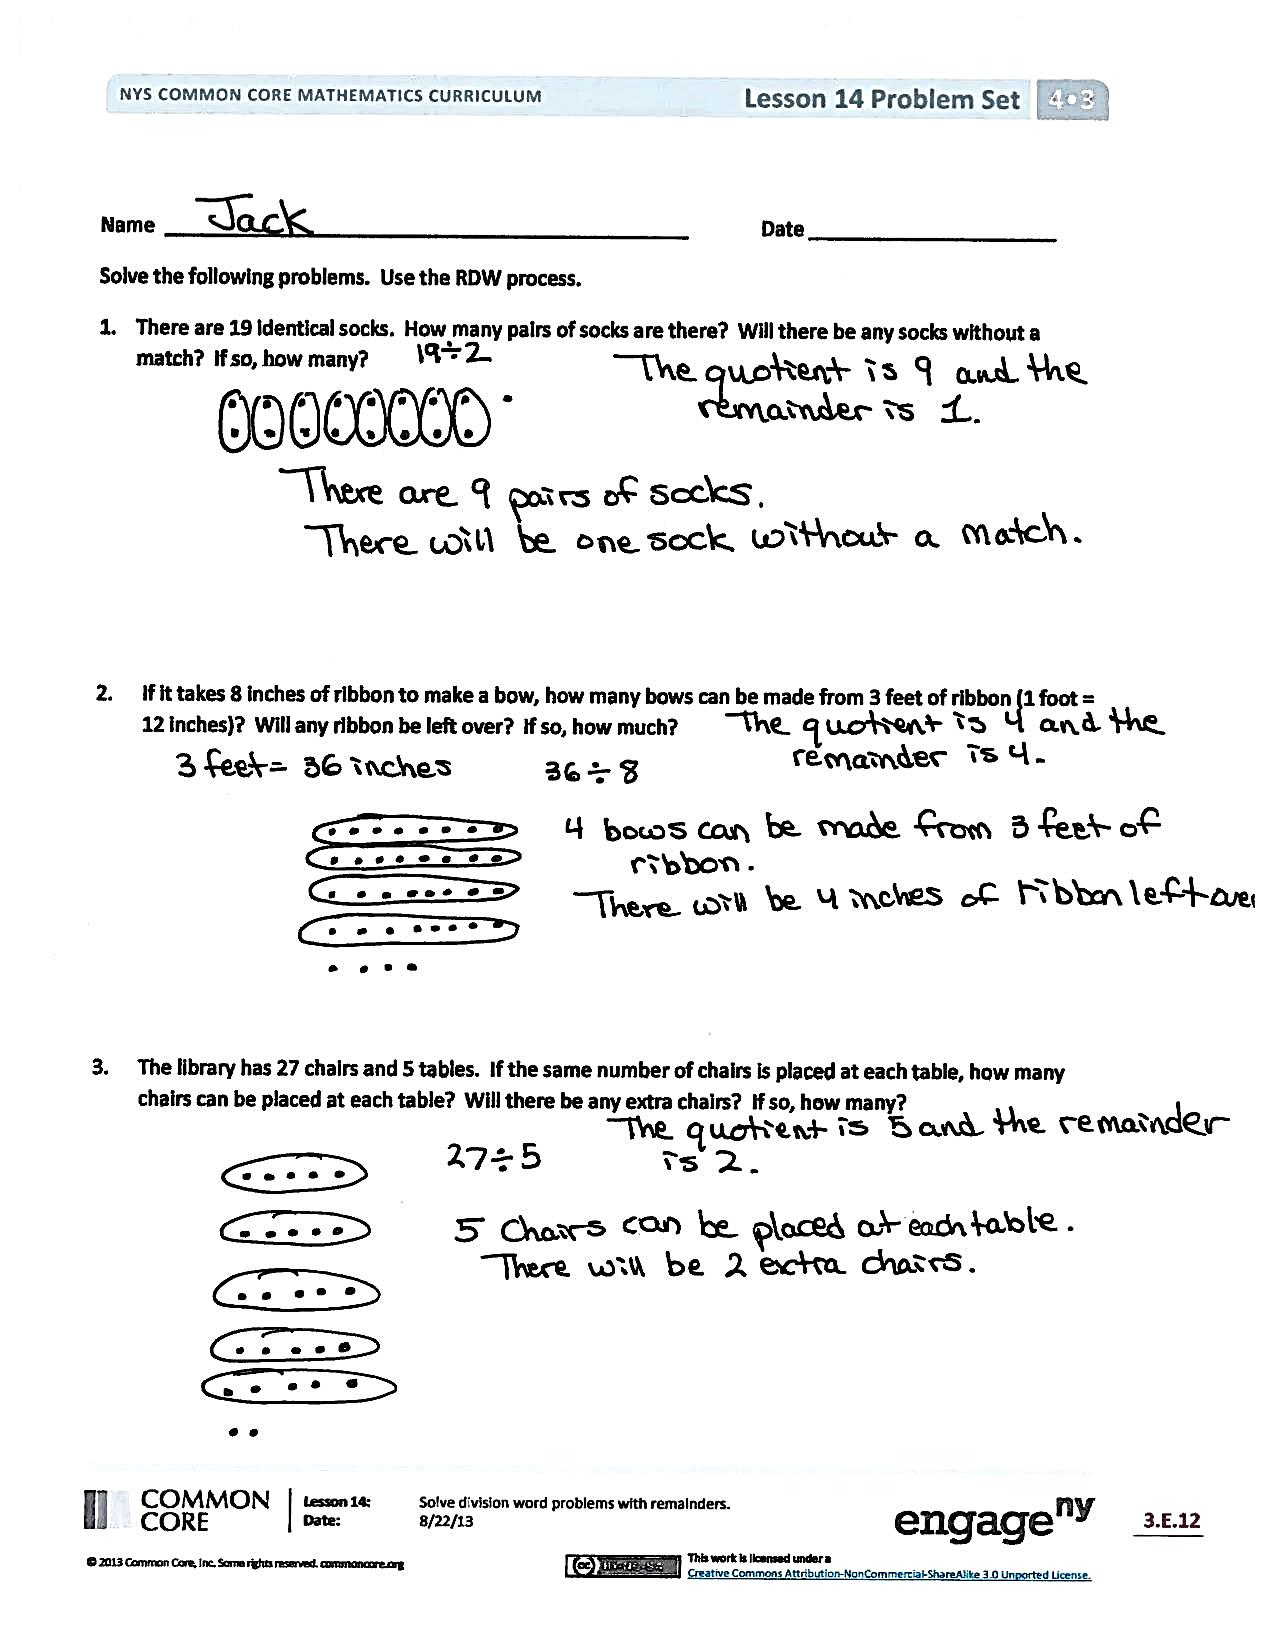 NYS COMMON CORE MATHEMATICS CURRICULUM
Lesson 14 Problem Set 4•3
Name Jack
Date
Solve the following problems. Use the RDW process.
1. There are 19 identical socks. How many pairs of socks are there? Will there be any socks without a
match? If so, how many?
19÷2
The quotient is 9 and the
remainder is 1.
There are 9 pairs of socks.
There will be one sock without a match.
2. If it takes 8 inches of ribbon to make a bow, how many bows can be made from 3 feet of ribbon (1 foot =
12 inches)? Will any ribbon be left over? If so, how much?
The quotient is 4 and the
remainder is 4.
3 feet = 36 inches
36 ÷ 8
4 bows can be made from 3 feet of
ribbon.
There will be 4 inches of ribbon left over
3. The library has 27 chairs and 5 tables. If the same number of chairs is placed at each table, how many
chairs can be placed at each table? Will there be any extra chairs? If so, how many?
The quotient is 5 and the remainder
is 2.
27÷5
5 Chairs can be placed at each table.
There will be 2 extra chairs.
COMMON
CORE
Lesson 14: Solve division word problems with remainders.
Date: 8/22/13
engage ny
3.E.12
© 2013 Common Core, Inc. Some rights reserved. commoncore.org
cc
This work is licensed under a
Creative Commons Attribution-NonCommercial-ShareAlike 3.0 Unported License.